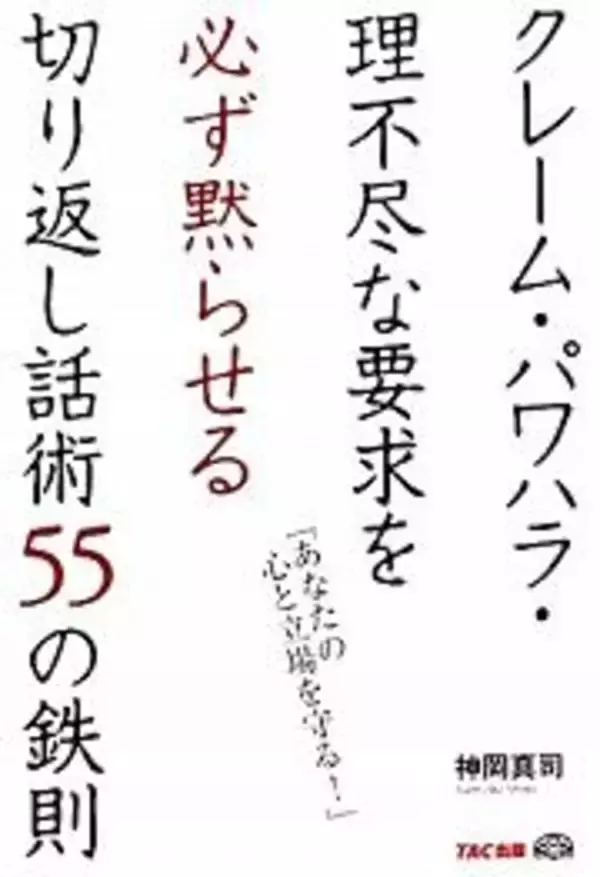 クレーム・パワハラ・
理不尽な要求を
必ず黙らせる
切り返し話術55の鉄則
「あなたの
心と立場を守る!」
神岡真司
TAC出版